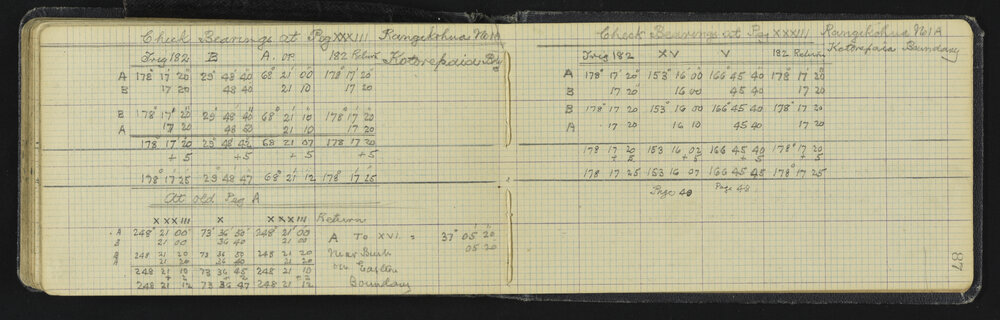 Check Bearings at Peg XXXIII Rangikohua No1A
Kotorepaia Bdy
Trig 182 E A. OP. 182 Return
A 178° 17' 20" 29° 48' 40" 68° 21' 00" 178° 17' 20"
B 17 20 48 40 21 10 17 20
B 178° 17' 20" 29° 48' 40" 68° 21' 10" 178° 17' 20"
A 17 20 48 50 21 10 17 20
178 17 20 29° 48 42 68 21 07 178 17 20
+5 +5 +5 +5
178° 17' 25" 29° 48' 47" 68° 21' 12" 178° 17' 25"
At old Peg A
XXXIII X XXXIII Return
A 248° 21' 00" 73° 36' 50" 248° 21' 00"
B 21 00 36 40 21 00
B 248 21 20 73 36 50 248 21 20
A 21 20 36 40 21 20
248 21 10 73 36 45 248 21 10
+2 +2 +2
248 21 12 73 36 47 248 21 12
A To XVI. = 37° 05' 20"
05 20
Near Bush
on Easton
Boundary
Check Bearings at Peg XXXIII Rangikohua No1A
Kotorepaia Boundary
Trig 182 XV V 182 Return
A 178° 17' 20" 153° 16' 00" 166° 45' 40" 178° 17' 20"
B 17 20 16 00 45 40 17 20
B 178° 17' 20" 153° 16' 00" 166° 45' 40" 178° 17' 20"
A 17 20 16 10 45 40 17 20
178 17 20 153 16 02 166 45 40 178° 17' 20"
+5 +5 +5 +5
178 17 25 153 16 07 166 45 45 178° 17' 25"
Page 40 Page 48
87